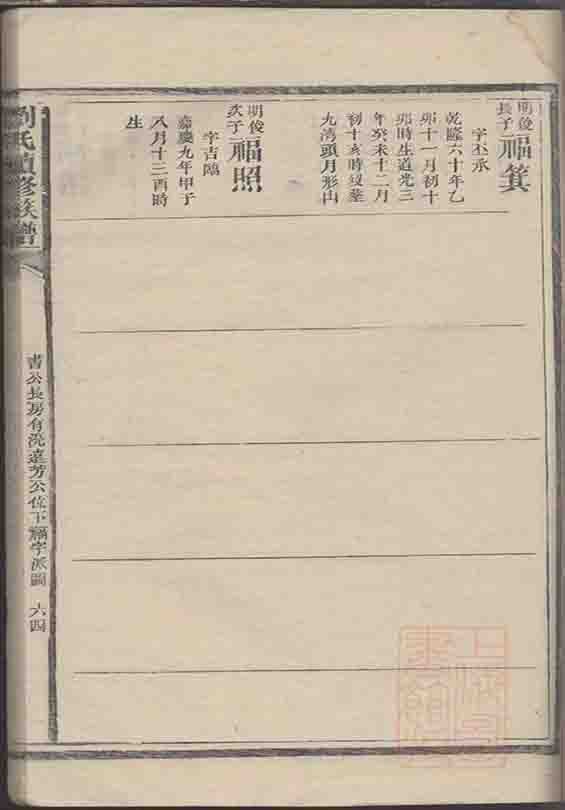 明俊
長子
福箕
字丕承
乾隆六十年乙
卯十一月初十
卯時生道光三
年癸未十二月
初十亥時歿葬
九湾頭月形山
明俊
次子
福照
字吉臨
嘉慶九年甲子
八月十三酉時
生
劉氏續修族譜
書公長房有浣遠芳公位下福字派圖 六四